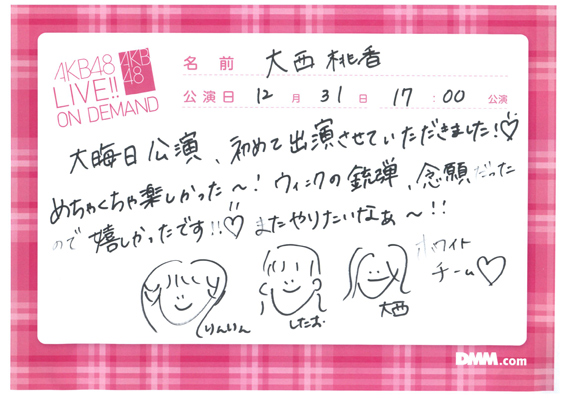 AKB48
LIVE!!
ON DEMAND
AKB
48
名前 大西桃香
公演日 12月31日 17:00公演
大晦日公演、初めて出演させていただきました!♡
めちゃくちゃ楽しかった〜!ウィンクの銃弾、念願だった
ので嬉しかったです!!♡またやりたいなぁ〜!!
ホワイト
チーム♡
りんりん
したお
大西
DMM.com